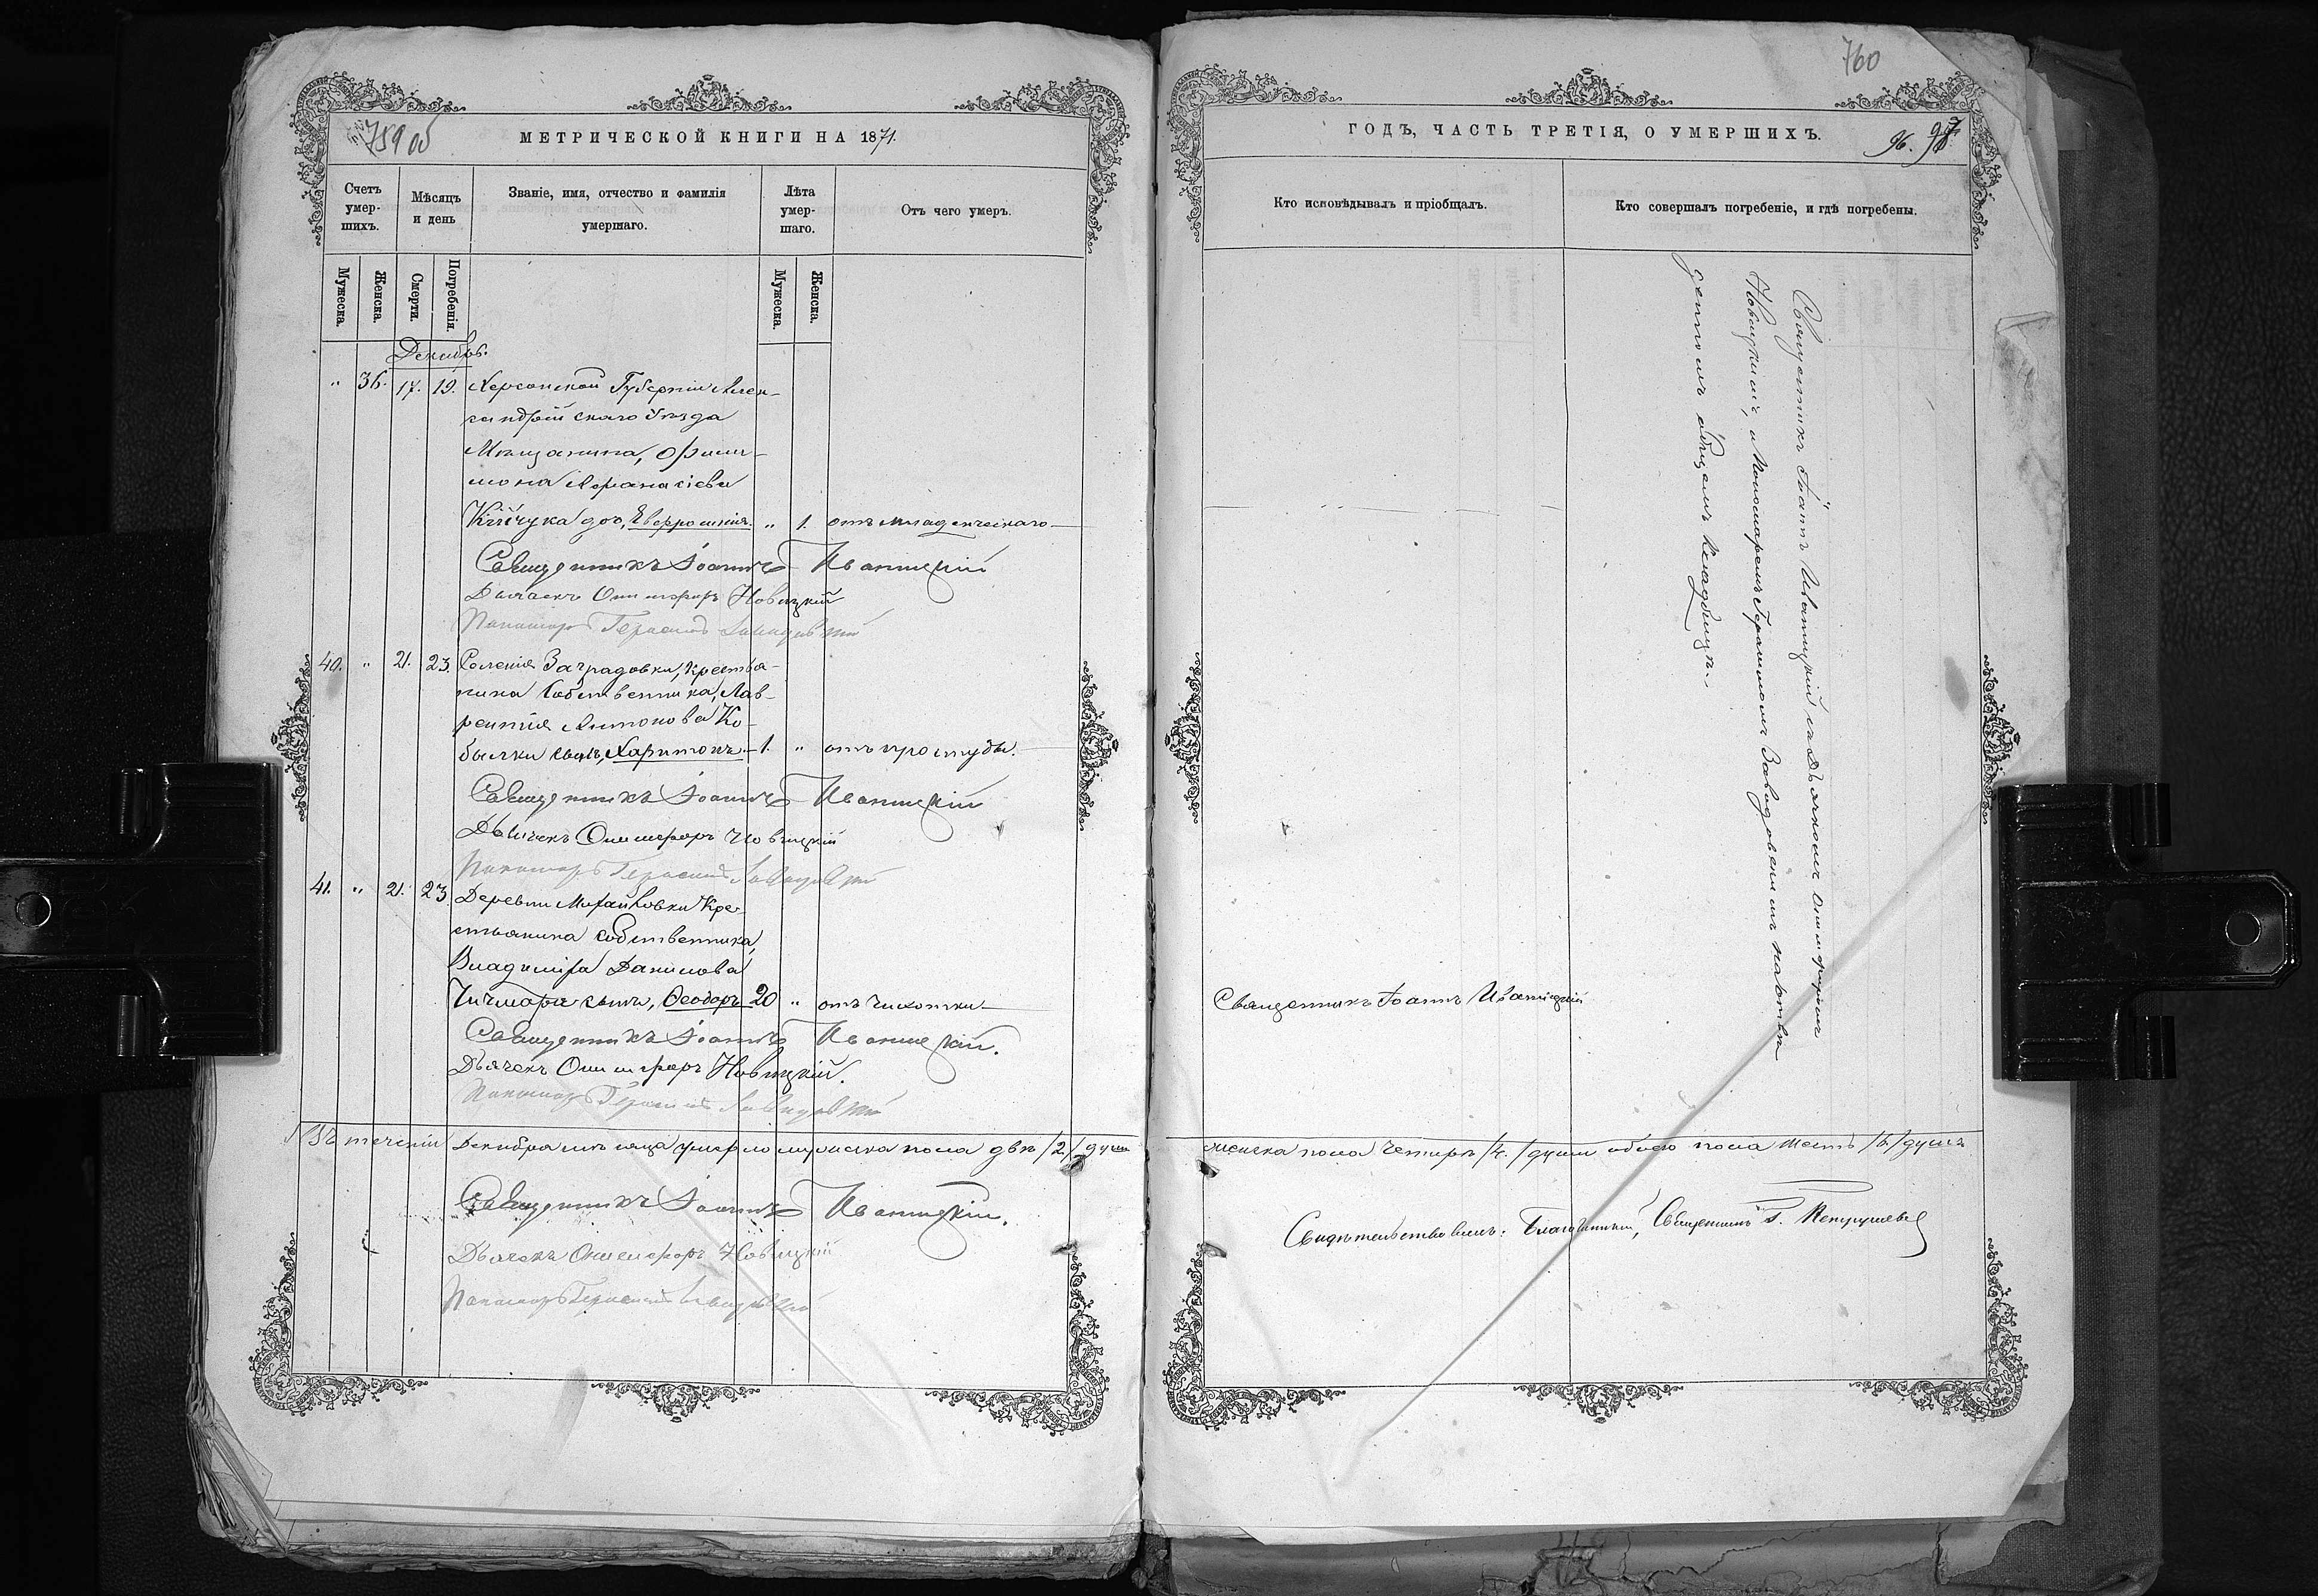 759 об
МЕТРИЧЕСКОЙ КНИГИ НА 1871.
Счетъ умер-шихъ.
Мѣсяцъ и день
Званіе, имя, отчество и фамилія умершаго.
Лѣта умер-шаго.
Отъ чего умеръ.
Мужеска.
Женска.
Смерти.
Погребенія.
Мужеска.
Женска.
Декабрь.
" 36. 17. 19. Херсонской Губерніи Алек-
сандрійскаго Уѣзда
Мѣщанина, Фили-
мона Афанасіева
доч, Евфросинія. " 1. отъ младенческаго
Священникъ Іоаннъ Иваницкій
Дьячекъ Онисифоръ Новицкій
Пономарь Герасимъ
40. " 21. 23. Селенія Заградовки, Крестья-
нина Собственника, Лав-
рентія Антонова Ко-
былки сынъ, Харитонъ. 1. " отъ простуды.
Священникъ Іоаннъ Иваницкій
Дьячекъ Онисифоръ Новицкій
Пономарь Герасимъ
41. " 21. 23. Деревни Михайловки Кре-
стьянина собственника,
Владиміра Данилова
Чичмаря сынъ, Ѳеодоръ 20 " отъ чахотки
Священникъ Іоаннъ Иваницкій.
Дьячекъ Онисифоръ Новицкій.
Пономарь Герасимъ
Въ теченіи Декабря мѣсяца умерло мужеска пола двѣ /2/ души
Священникъ Іоаннъ Иваницкій.
Дьячекъ Онисифоръ Новицкій
Пономарь Герасимъ
760
ГОДЪ, ЧАСТЬ ТРЕТІЯ, О УМЕРШИХЪ.
96.
Кто исповѣдывалъ и пріобщалъ.
Кто совершалъ погребеніе, и гдѣ погребены.
Священникъ Іоаннъ Иваницкій съ Дьячкомъ Онисифоромъ
Новицкимъ, и Пономаремъ Герасимомъ
на
общемъ кладбищѣ.
Священникъ Іоаннъ Иваницкій
женска пола четыре /4./ души обоего пола шесть /6/ душъ
Свидѣтельствовалъ: Благочинный, Священникъ